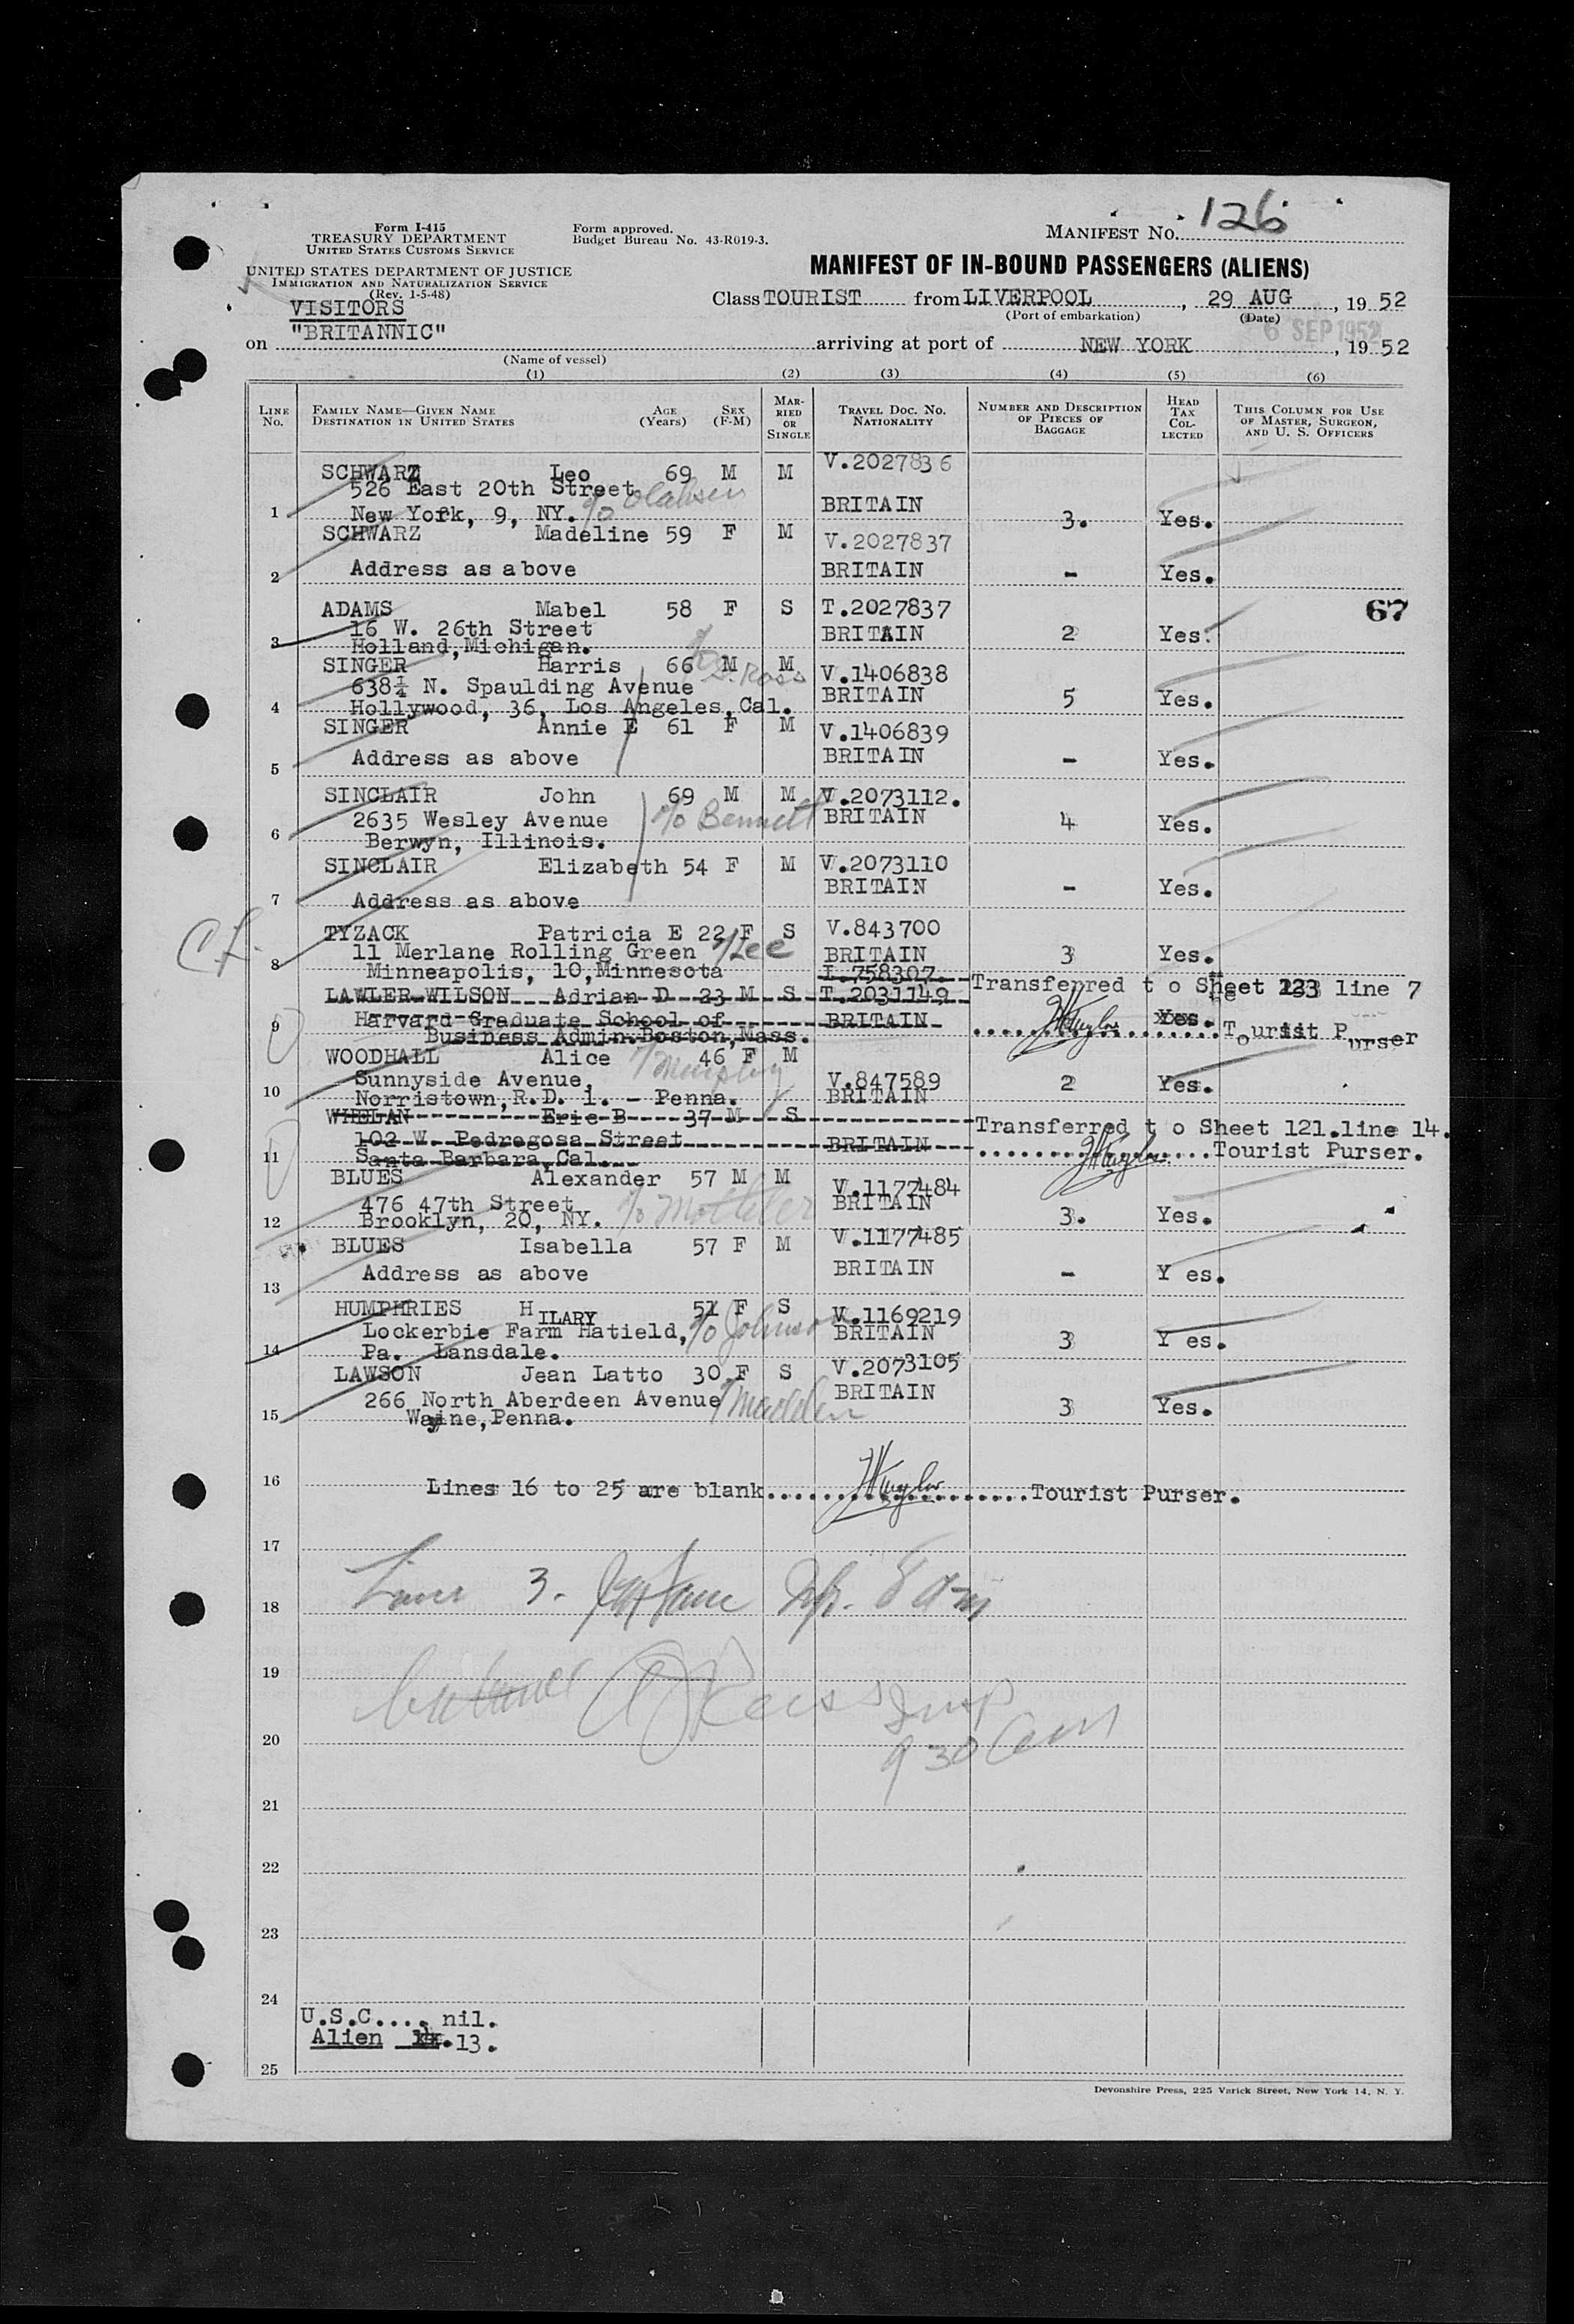 126
Form I-415
TREASURY DEPARTMENT
UNITED STATES CUSTOMS SERVICE
Form approved.
Budget Bureau No. 43-R019-3.
MANIFEST NO. 
UNITED STATES DEPARTMENT OF JUSTICE
IMMIGRATION AND NATURALIZATION SERVICE
(Rev. 1-5-48)
MANIFEST OF IN-BOUND PASSENGERS (ALIENS)
VISITORS
Class TOURIST from LIVERPOOL, 29 AUG, 19 52
(Port of embarkation) (Date)
6 SEP 1952
on "BRITANNIC" arriving at port of NEW YORK, 19 52
(Name of vessel)
(1) (2) (3) (4) (5) (6)
LINE No. FAMILY NAME—GIVEN NAME DESTINATION IN UNITED STATES AGE (Years) SEX (F-M) MARRIED OR SINGLE TRAVEL DOC. NO. NATIONALITY NUMBER AND DESCRIPTION OF PIECES OF BAGGAGE HEAD TAX COLLECTED THIS COLUMN FOR USE OF MASTER, SURGEON, AND U. S. OFFICERS
SCHWARZ Leo 69 M M V.2027836
526 East 20th Street
1 New York, 9, NY. BRITAIN 3. Yes.
SCHWARZ Madeline 59 F M V.2027837
2 Address as above BRITAIN - Yes.
67
ADAMS Mabel 58 F S T.2027837
16 W. 26th Street BRITAIN 2 Yes.
3 Holland, Michigan.
SINGER Harris 66 M M V.1406838
c/o S. Ross
638¼ N. Spaulding Avenue BRITAIN 5 Yes.
4 Hollywood, 36, Los Angeles, Cal.
SINGER Annie E 61 F M V.1406839
5 Address as above BRITAIN - Yes.
SINCLAIR John 69 M M V.2073112.
2635 Wesley Avenue c/o Bennett BRITAIN 4 Yes.
6 Berwyn, Illinois.
SINCLAIR Elizabeth 54 F M V.2073110
BRITAIN - Yes.
7 Address as above
TYZACK Patricia E 22 F S V.843700
11 Merlane Rolling Green c/o Lee BRITAIN 3 Yes.
8 Minneapolis, 10, Minnesota
I.758307.
LAWLER-WILSON Adrian D 23 M S T.2031149 Transferred t o Sheet 123 line 7
9 Harvard Graduate School of BRITAIN Yes. Tourist Purser
Business Admin. Boston, Mass.
WOODHALL Alice 46 F M
c/o Murphy
Sunnyside Avenue, V.847589 2 Yes.
10 Norristown, R.D. 1. - Penna. BRITAIN
WHELAN Eric B 37 M S Transferred t o Sheet 121.line 14.
102 W. Pedregosa Street BRITAIN
11 Santa Barbara, Cal. Tourist Purser.
BLUES Alexander 57 M M V.1177484
476 47th Street BRITAIN
12 Brooklyn, 20, NY. 3. Yes.
BLUES Isabella 57 F M V.1177485
13 Address as above BRITAIN - Y es.
HUMPHRIES HILARY 51 F S V.1169219
Lockerbie Farm Hatield, c/o Johnson BRITAIN 3 Y es.
14 Pa. Lansdale.
LAWSON Jean Latto 30 F S V.2073105
266 North Aberdeen Avenue c/o Madden BRITAIN
15 Wayne, Penna. 3 Yes.
16 Lines 16 to 25 are blank Tourist Purser.
17
18 3.
19
20 930
21
22
23
24
U.S.C.... nil.
Alien 13.
25
Devonshire Press, 225 Varick Street, New York 14, N. Y.